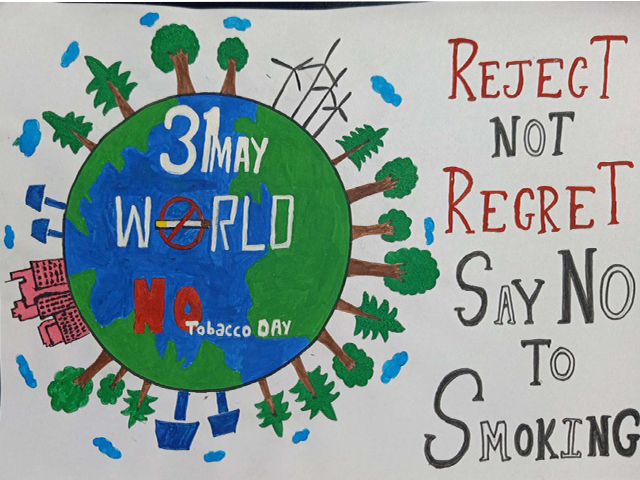 31 MAY
WORLD
NO Tobacco DAY
REJECT
NOT
REGRET
SAY NO
TO
SMOKING